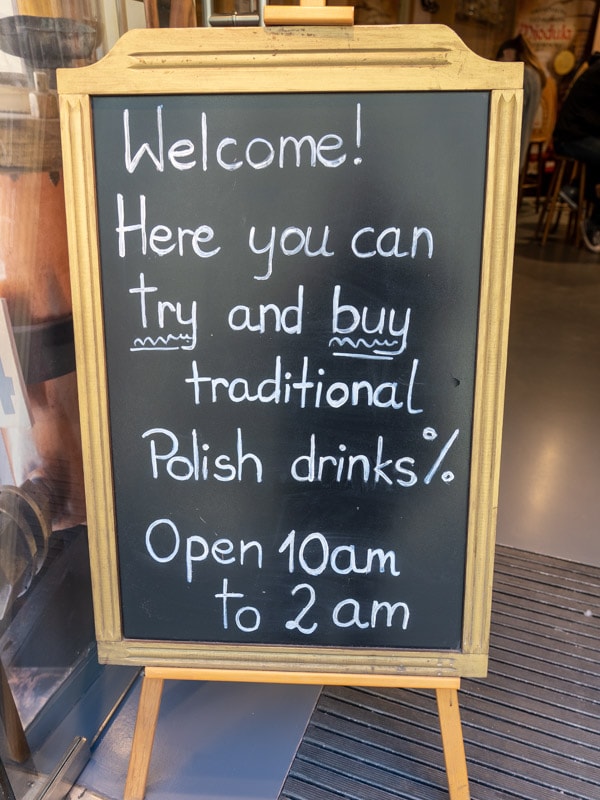 Welcome!
Here you can
try and buy
traditional
Polish drinks%
Open 10am
to 2 am